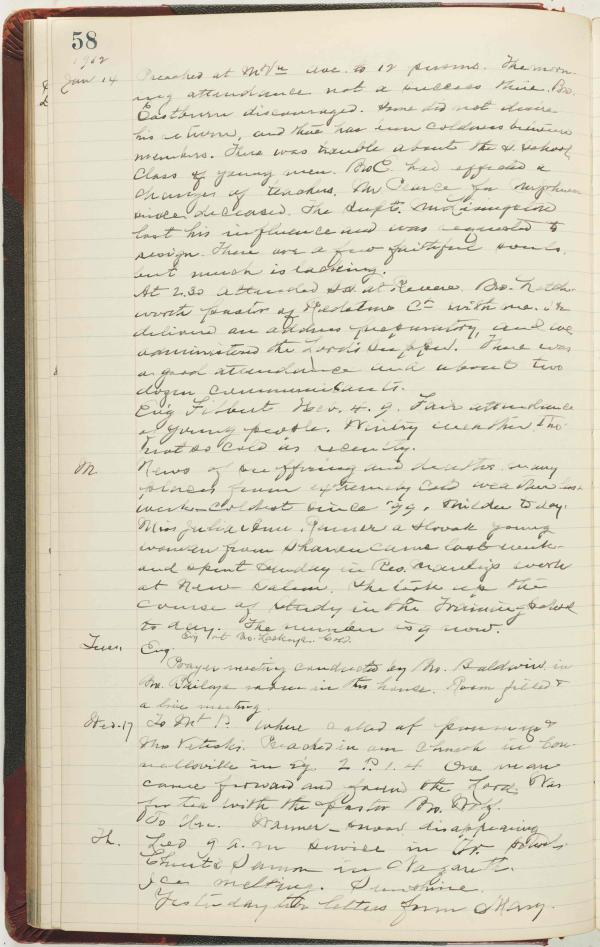 58
1912
Jan 14 Preached at Mt Vn Ave. to 12 persons. The morn-
S ing attendance not a success there. Bro.
Eastburn discouraged. Some did not desire
his return, and there has been coldness between
members. There was trouble about the S. School
Class of young men. Bro E. had effected a
change of teachers, Mr Pearce for
since deceased. The Supt. Mr Livingston
lost his influence and was requested to
resign. There are a few faithful souls,
but much is lacking.
At 2.30 attended S.S. at Revere. Bro.
worth pastor of Redstone Ct with me. He
delivered an address preparatory, and we
administered the Lord's Supper. There was
a good attendance and about two
dozen communicants.
Ev'g Filbert Rev. 4. 9. Fair attendance
of young people. Wintry weather tho'
not so cold as recently.
M News of suffering and deaths many
places from extremely cold weather last
week – coldest since '99. Milder today.
Miss Julia Ann a Slovak young
woman from Sharon came last week
and spent Sunday in Res. work
at New Salem. She took up the
course of study in the Training School
to day. The number is 9 now.
Ev'g at Bro.
Tues. Evg.
Prayer meeting conducted by Mr. Baldwin in
Mr. room in this house. Room filled &
a live meeting.
Wed. 17 To Mt P. where called at &
Mrs Preached in our church in Con-
nellsville in Ev'g 2 P. 1. 4 One man
came forward and found the Lord. Was
for tea with the pastor Bro.
To Un. Warmer – snow disappearing
Th. Led 9 a.m service in Tr. School
Christ's Sermon in Nazareth.
Ice melting. Sunshine.
Yesterday letters from Mary.